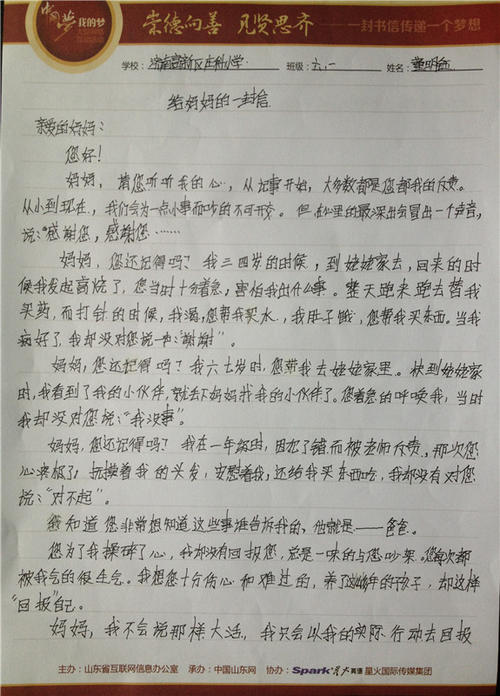 中国梦 我的梦 崇德向善 见贤思齐 ——一封书信传递一个梦想
学校: 济南高新区庄科小学 班级: 六.一 姓名: 董明
给妈妈的一封信
亲爱的妈妈:
您好!
妈妈,请您听听我的心,从记事开始,大多数都是您都我的斥责。
从小到现在,我们会为一点小事而吵的不可开交。但在心里的最深出会冒出一个声音,
说:“感谢您,感谢您……
妈妈,您还记得吗?我三四岁的时候,到姥姥家去,回来的时
候我发起高烧了,您当时十分着急,害怕我出什么事。整天跑来跑去替我
买药,而打针的时候,我渴,您帮我买水,我肚子饿,您帮我买东西。当我
病好了,我却没对您说一声:“谢谢”。
妈妈,您还记得吗?我六七岁时,您带我去姥姥家里。快到姥姥家
时,我看到了我的小伙伴,就丢下妈妈找我的小伙伴了。您着急的呼唤我,当时
我却没对您说:“我没事”。
妈妈,您还记得吗?我在一年级时,因犯了错而被老师斥责,那次您
心疼极了,抚摸着我的头发,安慰着我,还给我买东西吃,我却没有对您
说:“对不起”。
我知道您非常想知道这些事谁告诉我的,他就是——爸爸。
您为了我操碎了心,我却没有回报您,总是一味的与您吵架。您每次都
被我气的很生气。我想您十分伤心和难过的,养了年的孩子,却这样
“回报”自己。
妈妈,我不会说那样大话,我只会以我的实际行动去回报
主办:山东省互联网信息办公室 承办:中国山东网 协办:Spark星火英语 星火国际传媒集团